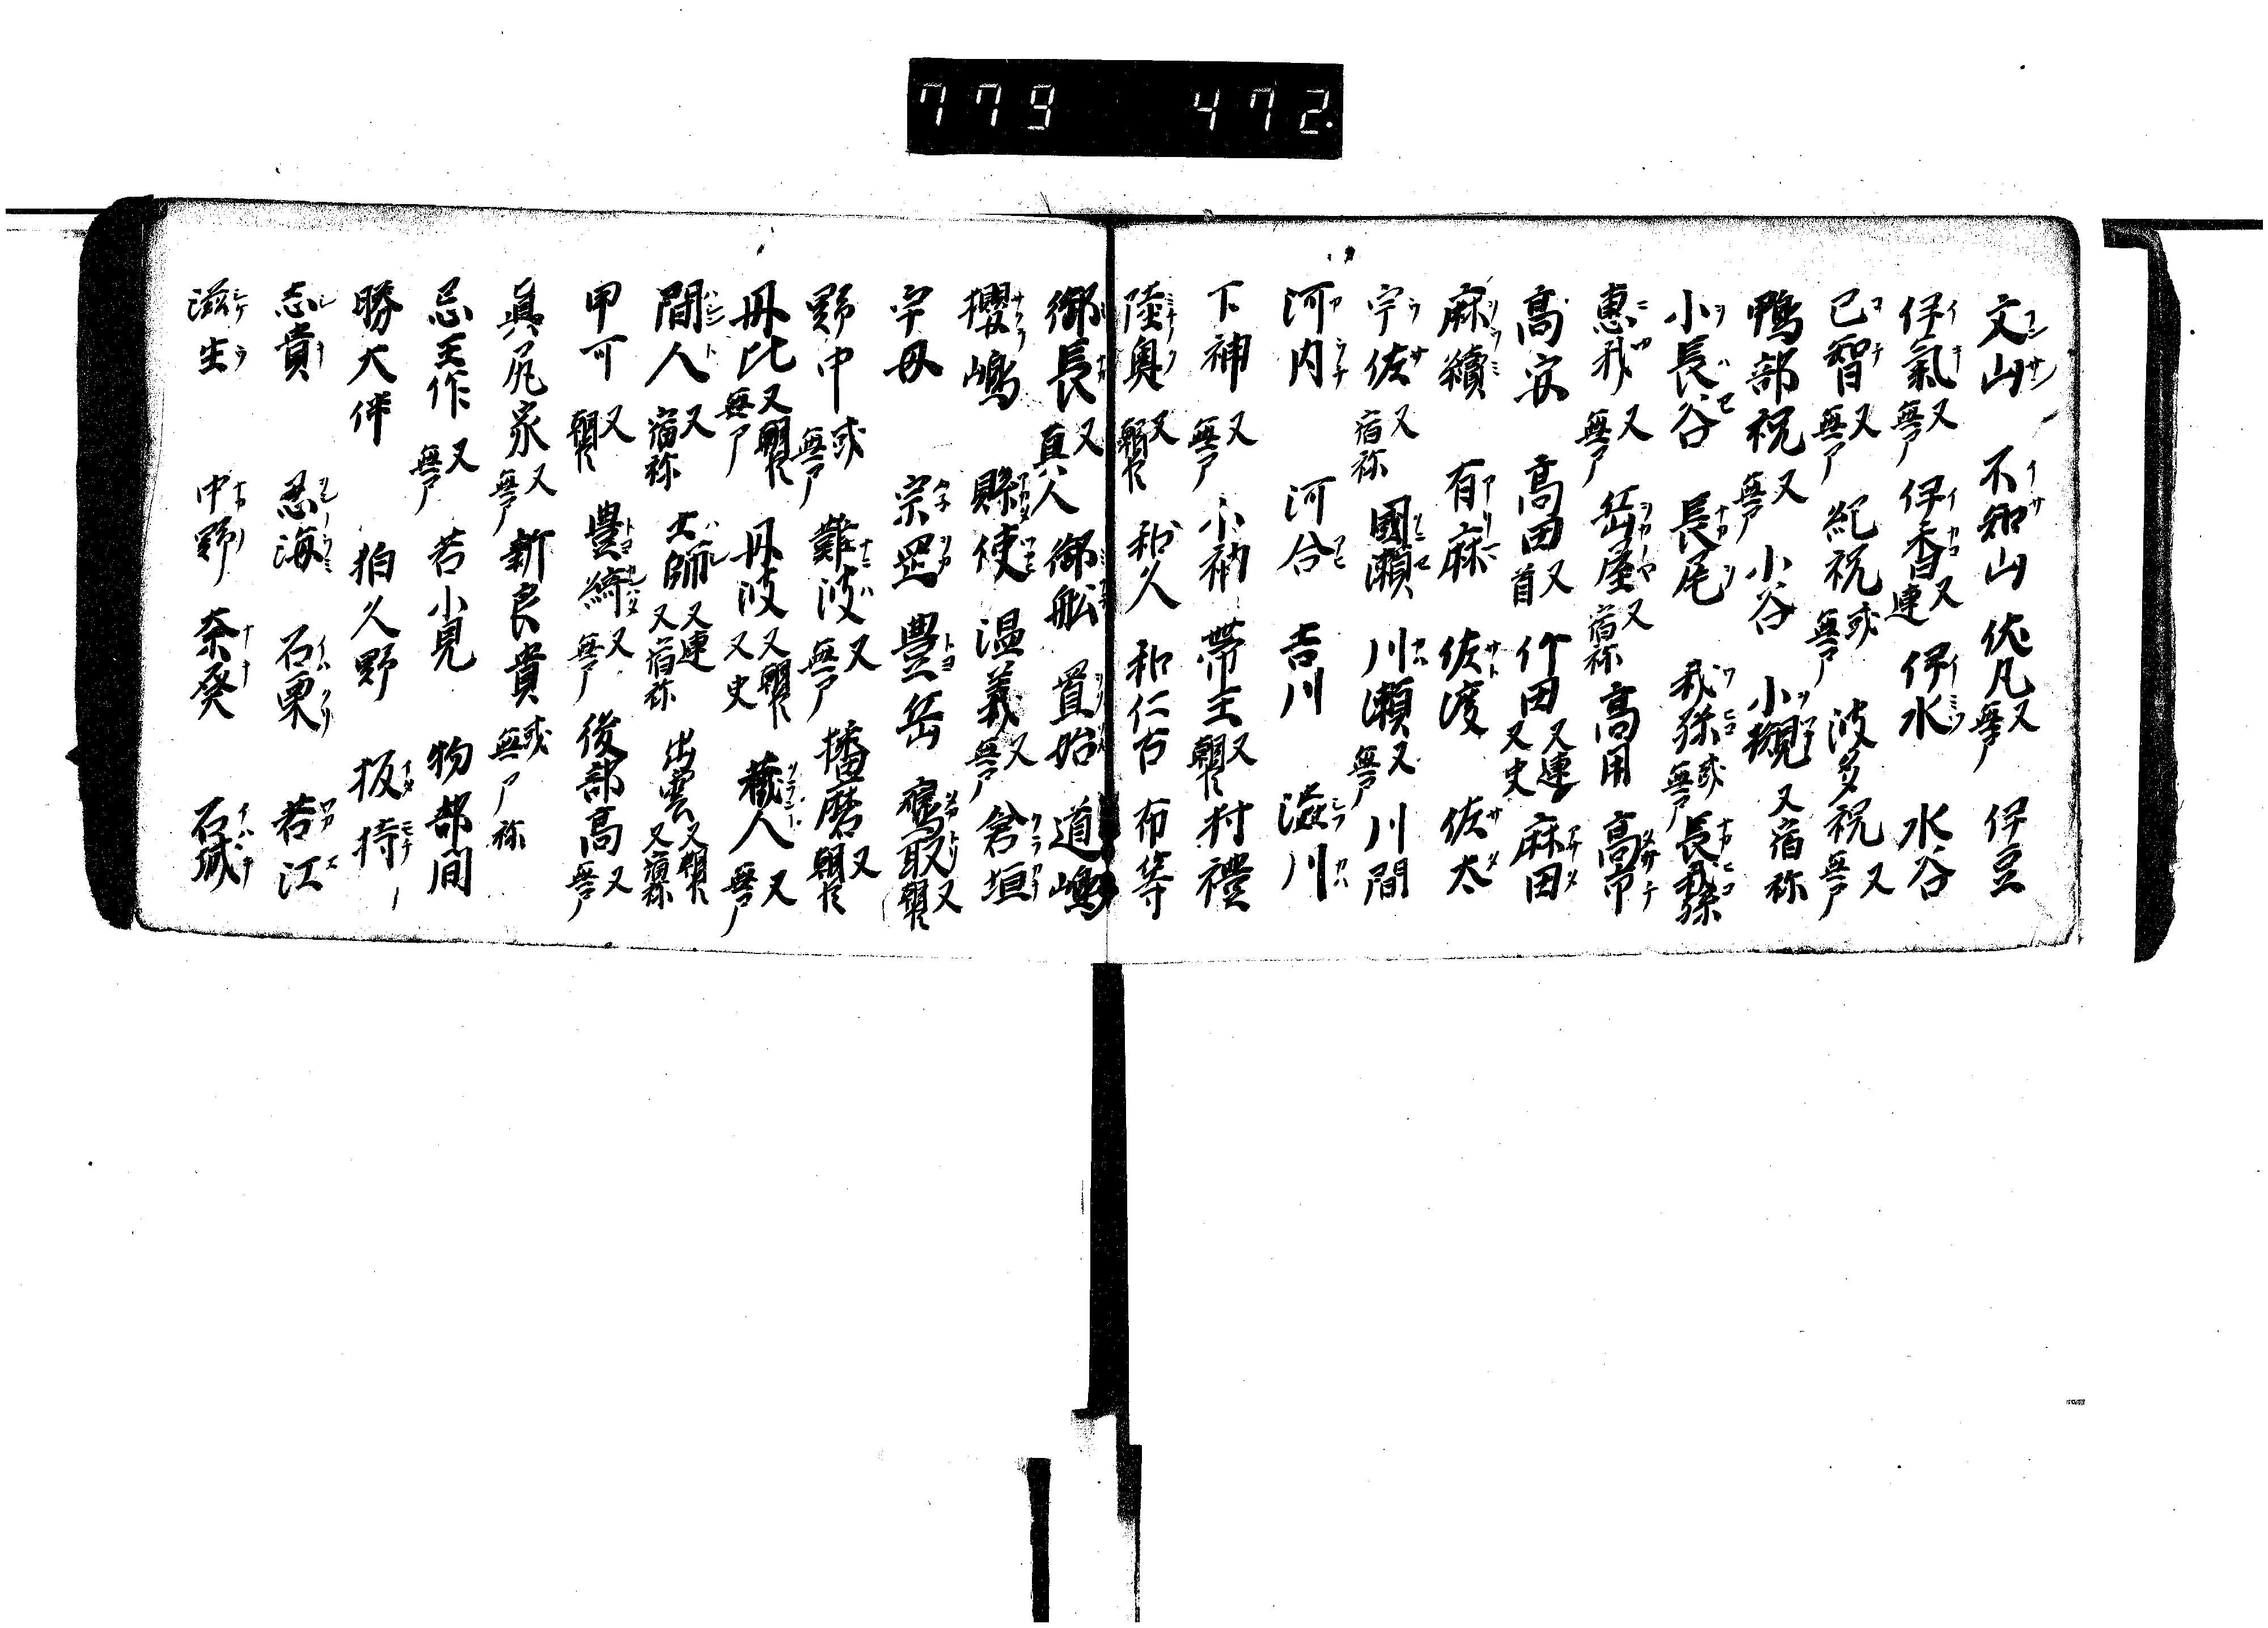 779 472.
文山 不知山 佐凡又無尸 伊豆
伊氣又無尸 伊香又連 伊水 水谷
已智又無尸 紀祝或無尸 波多祝又無尸
鴨部祝又無尸 小谷 小槻又宿祢
小長谷 長尾 我孫或無尸 長我孫
惠我又無尸 岳屋又宿祢 高用 高市
高安 高田又首 竹田又連又史 麻田
麻續 有麻 佐渡 佐太
宇佐又宿祢 國瀬 川瀬又無尸 川間
河内 河合 吉川 滋川
下神又無尸 小 帶王又朝臣 村禮
陸奥又朝臣 和久 和仁古 布等
御長又真人 御船 置始 道嶋
櫻嶋 縣使 温義又無尸 倉垣
宇母 宗岳 豊岳 鳥取又朝臣
野中或無尸 難波又無尸 播磨又朝臣
丹比又朝臣無尸 丹波又朝臣又史 藏人又無尸
間人又宿祢 土師又連又宿祢 出雲又朝臣又宿祢
甲可又朝臣 豊綺又無尸 後部高又無尸
真尻家又無尸 新良貴或無尸祢
忌玉作又無尸 若小見 物部間
勝大伴 狛久野 板持
志貴 忍海 石栗 若江
滋生 中野 奈癸 石城